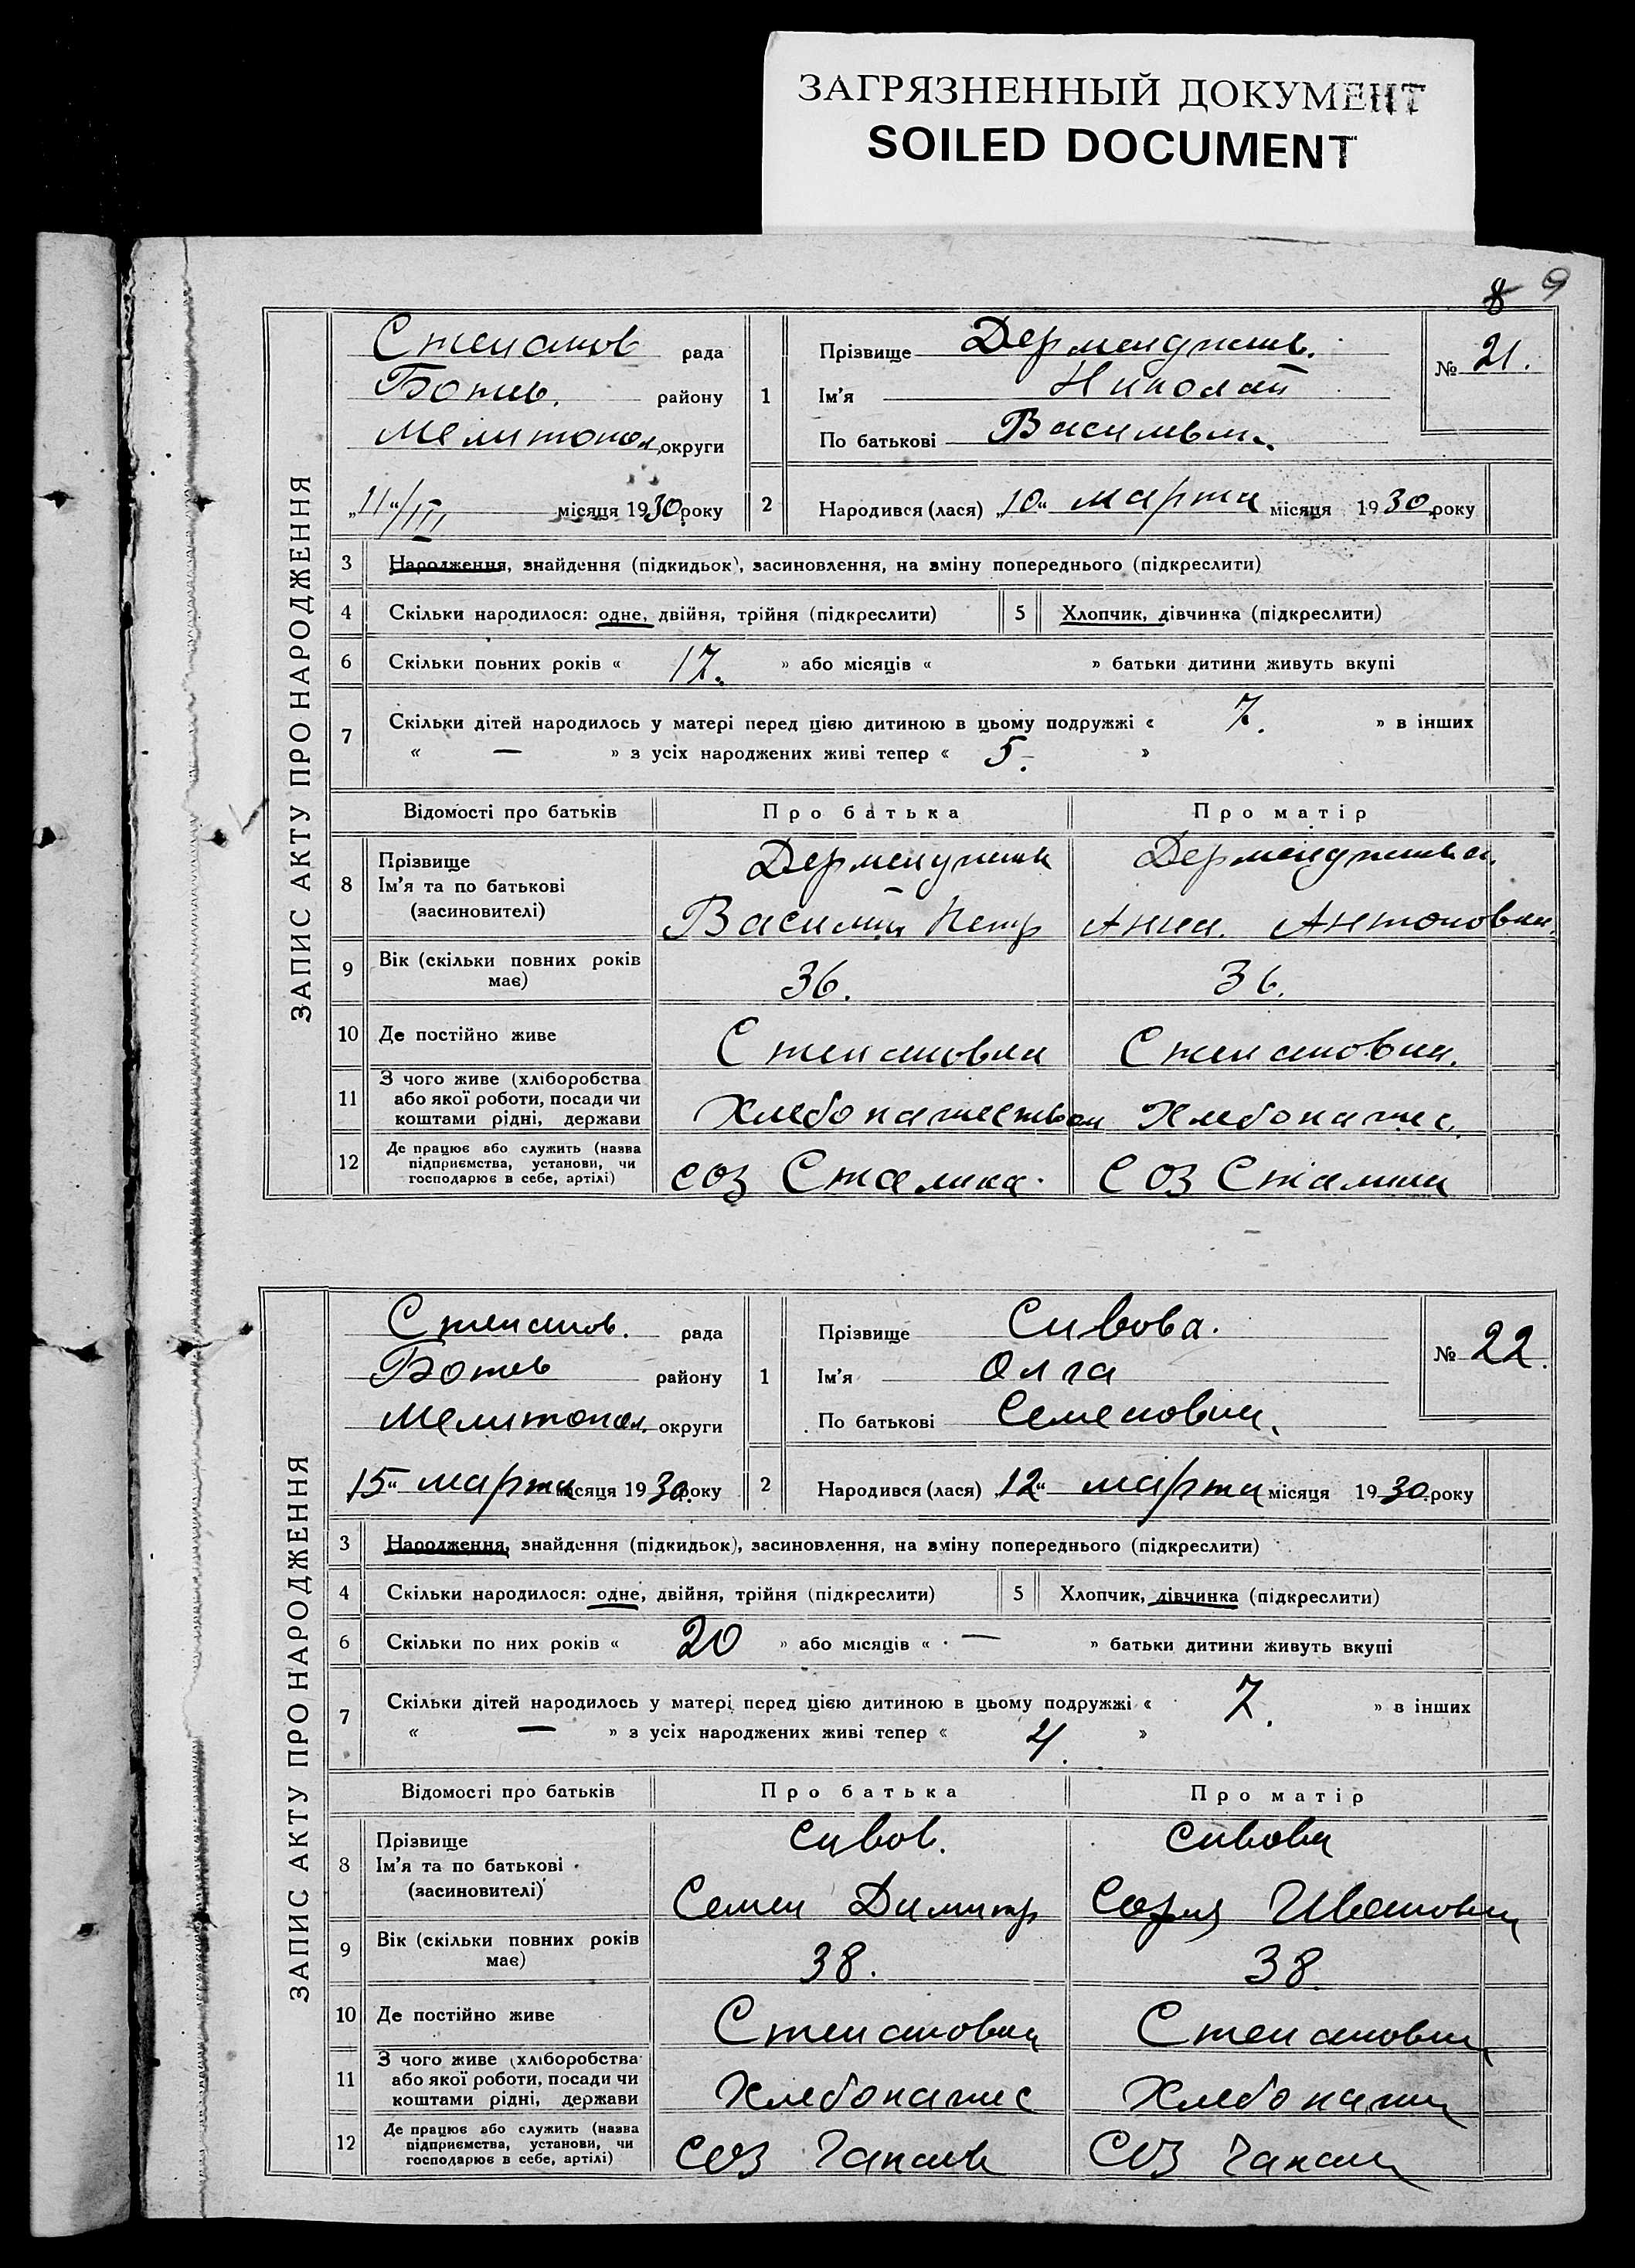 ЗАГРЯЗНЕННЫЙ ДОКУМЕНТ
SOILED DOCUMENT
8 9
ЗАПИС АКТУ ПРО НАРОДЖЕННЯ
Степанов рада
Ботев. району
Мелитопол. округи
„11“/III місяця 1930 року
1
Прізвище Дерменджив.
Ім'я Николай
По батькові Васильев.
№ 21.
2 Народився (лася) „10“ марта місяця 1930 року
3 Народження, знайдення (підкидьок), засиновлення, на зміну попереднього (підкреслити)
4 Скільки народилося: одне, двійня, трійня (підкреслити) 5 Хлопчик, дівчинка (підкреслити)
6 Скільки повних років « 17. » або місяців « » батьки дитини живуть вкупі
7 Скільки дітей народилось у матері перед цією дитиною в цьому подружжі « 7. » в інших
« — » з усіх народжених живі тепер « 5. »
Відомості про батьків Про батька Про матір
8 Прізвище
Ім'я та по батькові
(засновителі)
Дермен
Василий Петр Анна. Антоновна.
9 Вік (скільки повних років має) 36. 36.
10 Де постійно живе Степановка Степановка.
11 З чого живе (хліборобства
або якої роботи, посади чи
коштами рідні, держави Хлебопашеством Хлебопашес.
12 Де працює або служить (назва
підприємства, установи, чи
господарює в себе, артілі) СОЗ Сталина. СОЗ Сталина
ЗАПИС АКТУ ПРО НАРОДЖЕННЯ
Степанов. рада
Ботев району
Мелитопол. округи
15“ марта місяця 1930 року
1
Прізвище Сивова.
Ім'я Олга
По батькові Семеновна.
№ 22.
2 Народився (лася) „12“ марта місяця 1930 року
3 Народження, знайдення (підкидьок), засиновлення, на зміну попереднього (підкреслити)
4 Скільки народилося: одне, двійня, трійня (підкреслити) 5 Хлопчик, дівчинка (підкреслити)
6 Скільки по них років « 20 » або місяців « — » батьки дитини живуть вкупі
7 Скільки дітей народилось у матері перед цією дитиною в цьому подружжі « 7. » в інших
« — » з усіх народжених живі тепер « 4. »
Відомості про батьків Про батька Про матір
8 Прізвище
Ім'я та по батькові
(засиновителі)
Сивов. Сивова
Семен Димитр София Ивановна
9 Вік (скільки повних років має) 38. 38.
10 Де постійно живе Степановка Степановка
11 З чого живе (хліборобства
або якої роботи, посади чи
коштами рідні, держави Хлебопашес Хлебопаш
12 Де працює або служить (назва
підприємства, установи, чи
господарює в себе, артілі) СОЗ СОЗ